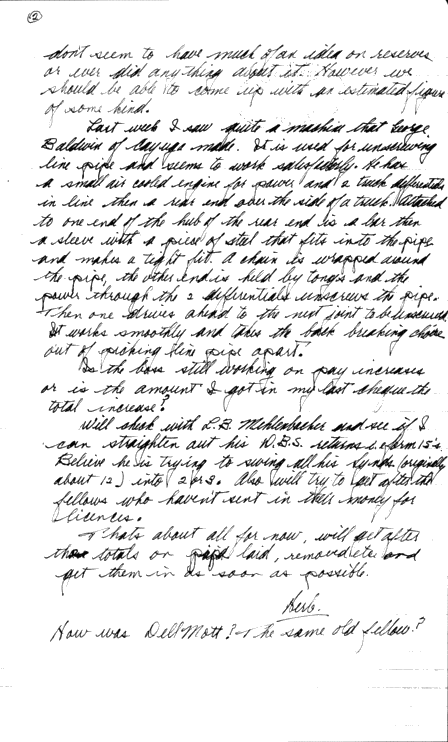 2
don't seem to have much of an idea on reserves
or ever did anything about it. However we
should be able to come up with an estimated figure
of some kind.
Last week I saw quite a machine that George
Baldwin of Cayuga made. It is used for unscrewing
line pipe and seems to work satisfactorily. He has
a small air cooled engine for power and 2 truck differentials
in line then a rear end over the side of a truck. Attached
to one end of the hub of the rear end is a bar then
a sleeve with a piece of steel that fits into the pipe
and makes a tight fit. A chain is wrapped around
the pipe, the other end is held by tongs and the
power through the 2 differentials unscrews the pipe.
Then one drives ahead to the next joint to be unscrewed.
It works smoothly and takes the back breaking chore
out of picking line pipe apart.
Is the boss still working on pay increases
or is the amount I got in my last cheque the
total increase?
Will check with L.B. Mehlenbacher and see if I
can straighten out his W.B.S. returns i.e. form 15's.
Believe he is trying to swing all his synds (originally
about 12) into 2 or 3. Also will try to get after the
fellows who haven't sent in their money for
licences.
Thats about all for now, will get after
those totals on pipe laid, removed etc and
get them in as soon as possible.
Herb.
How was Dell Mott? The same old fellow?